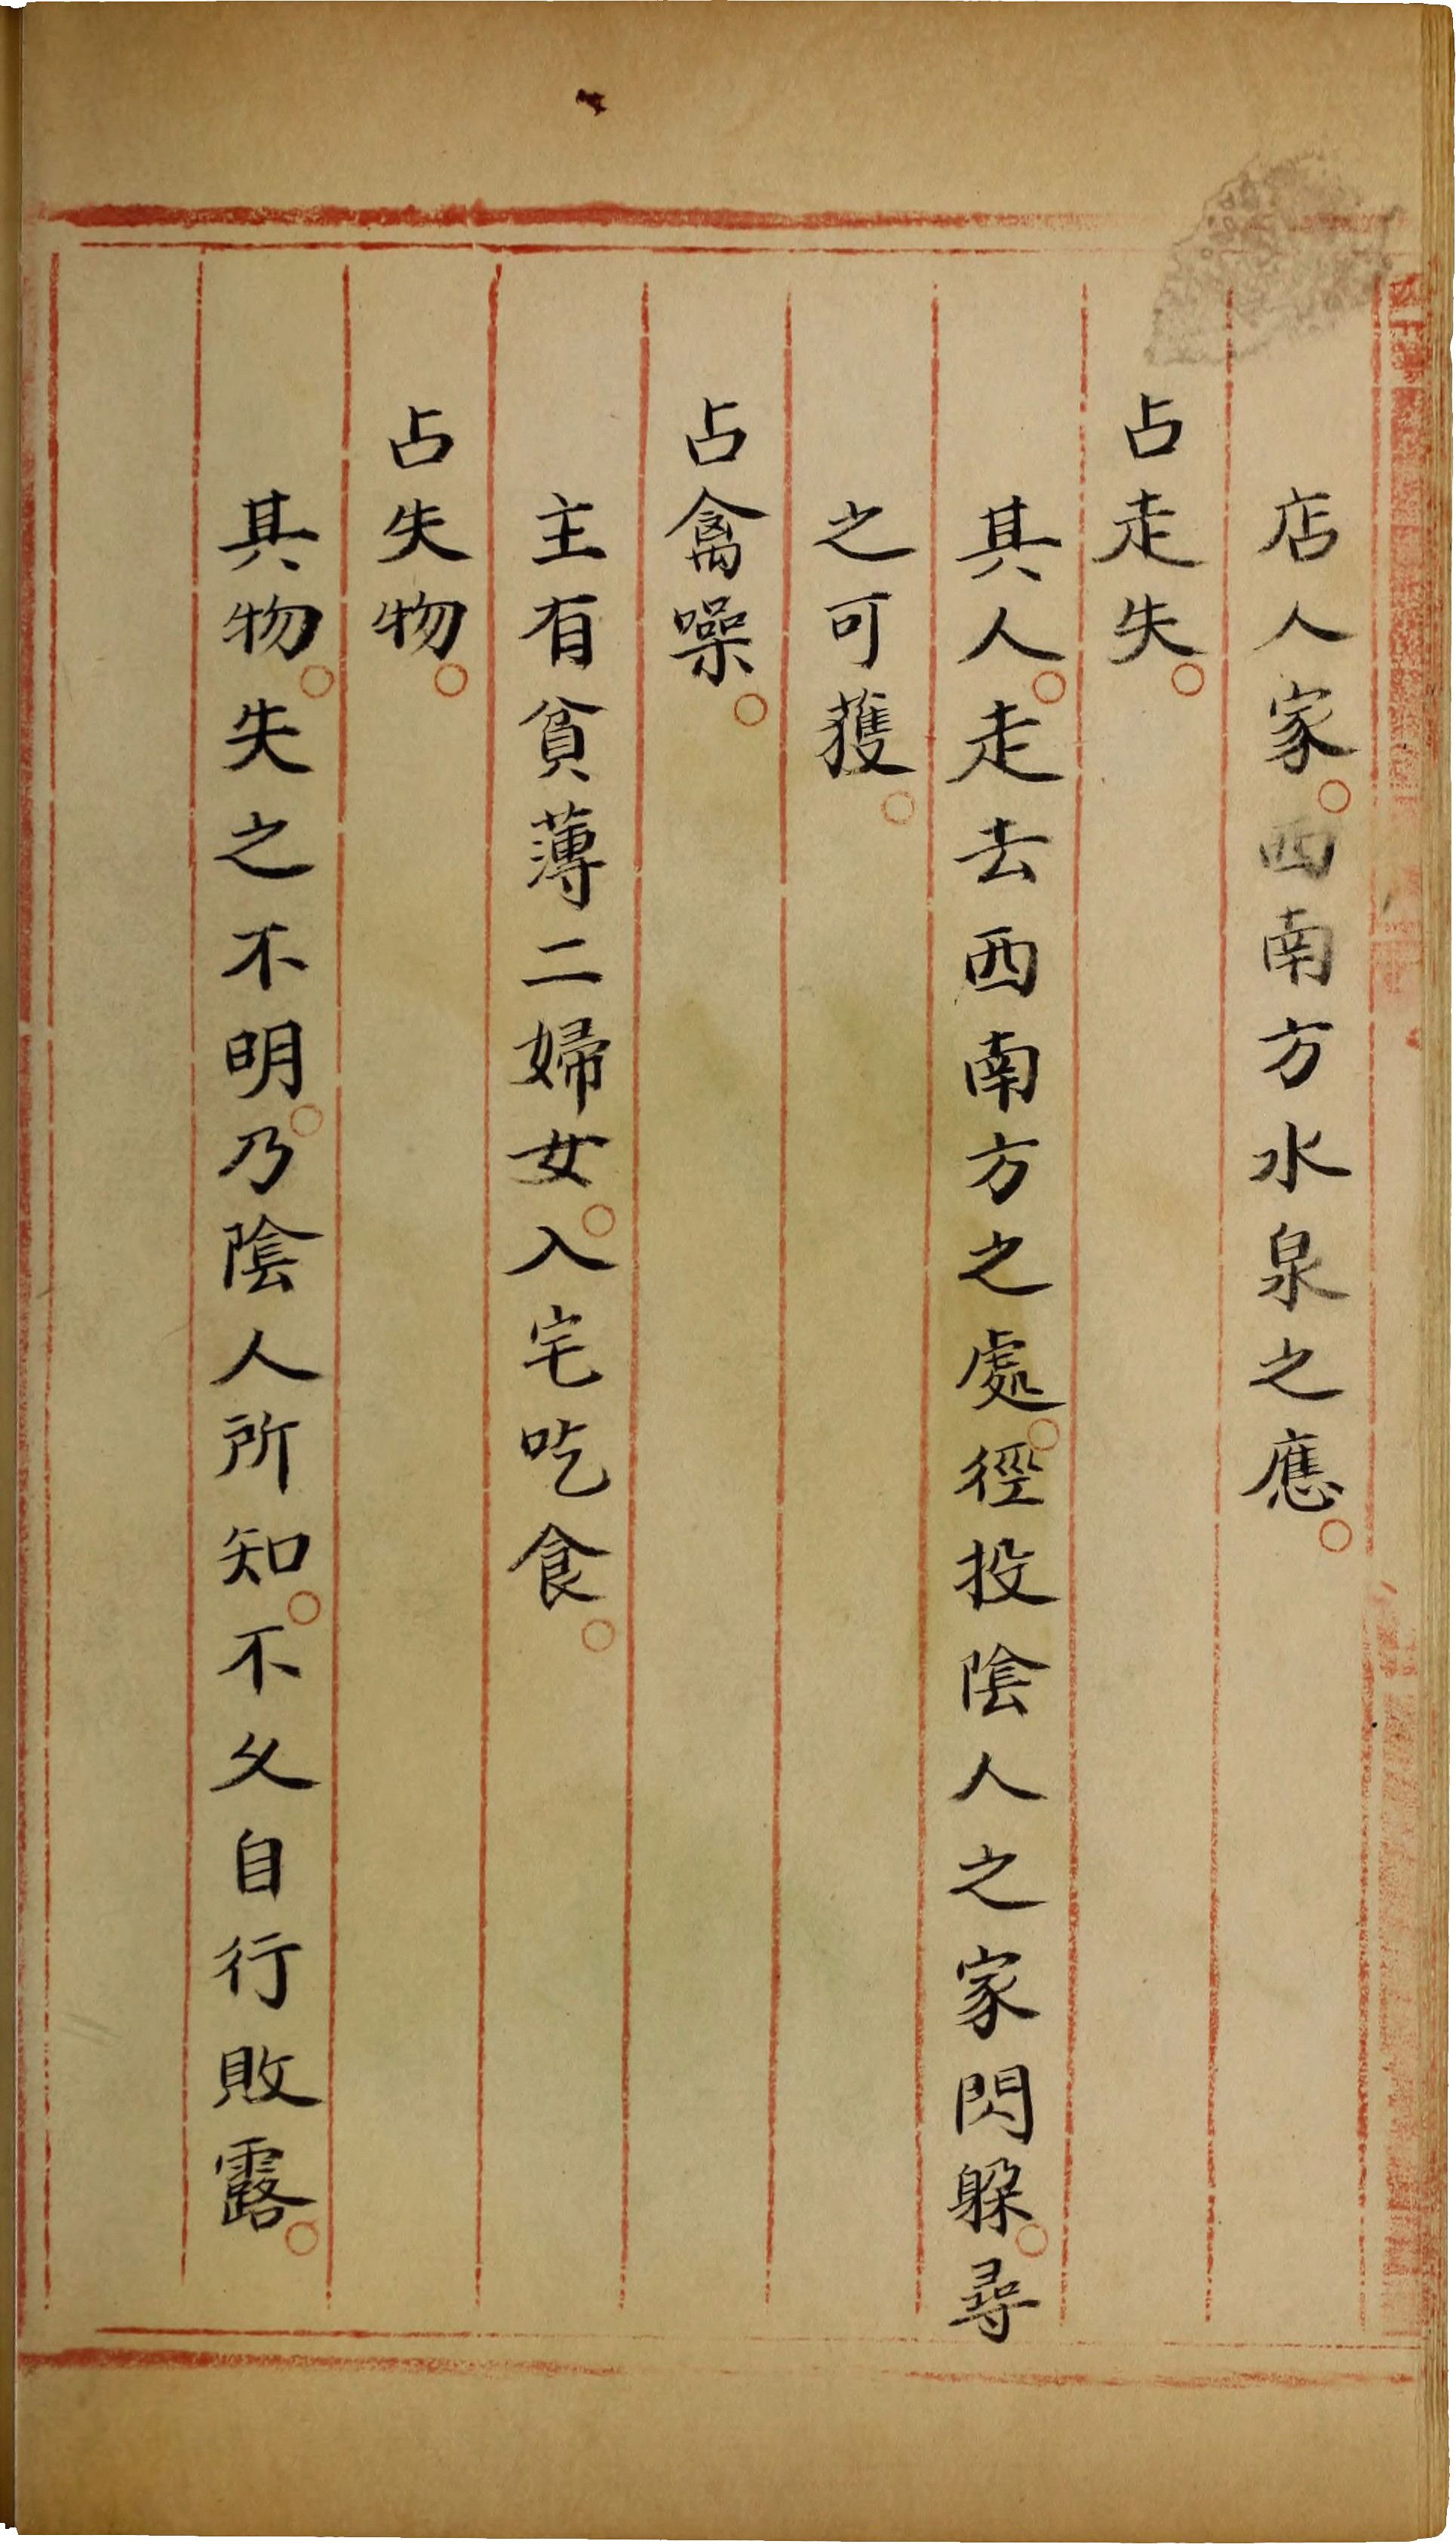 店人家。西南方水泉之應。
占走失。
其人。走去西南方之處。徑投陰人之家閃躲。尋
之可獲。
占禽噪。
主有貧薄二婦女。入宅吃食。
占失物。
其物。失之不明。乃陰人所知。不久自行敗露。